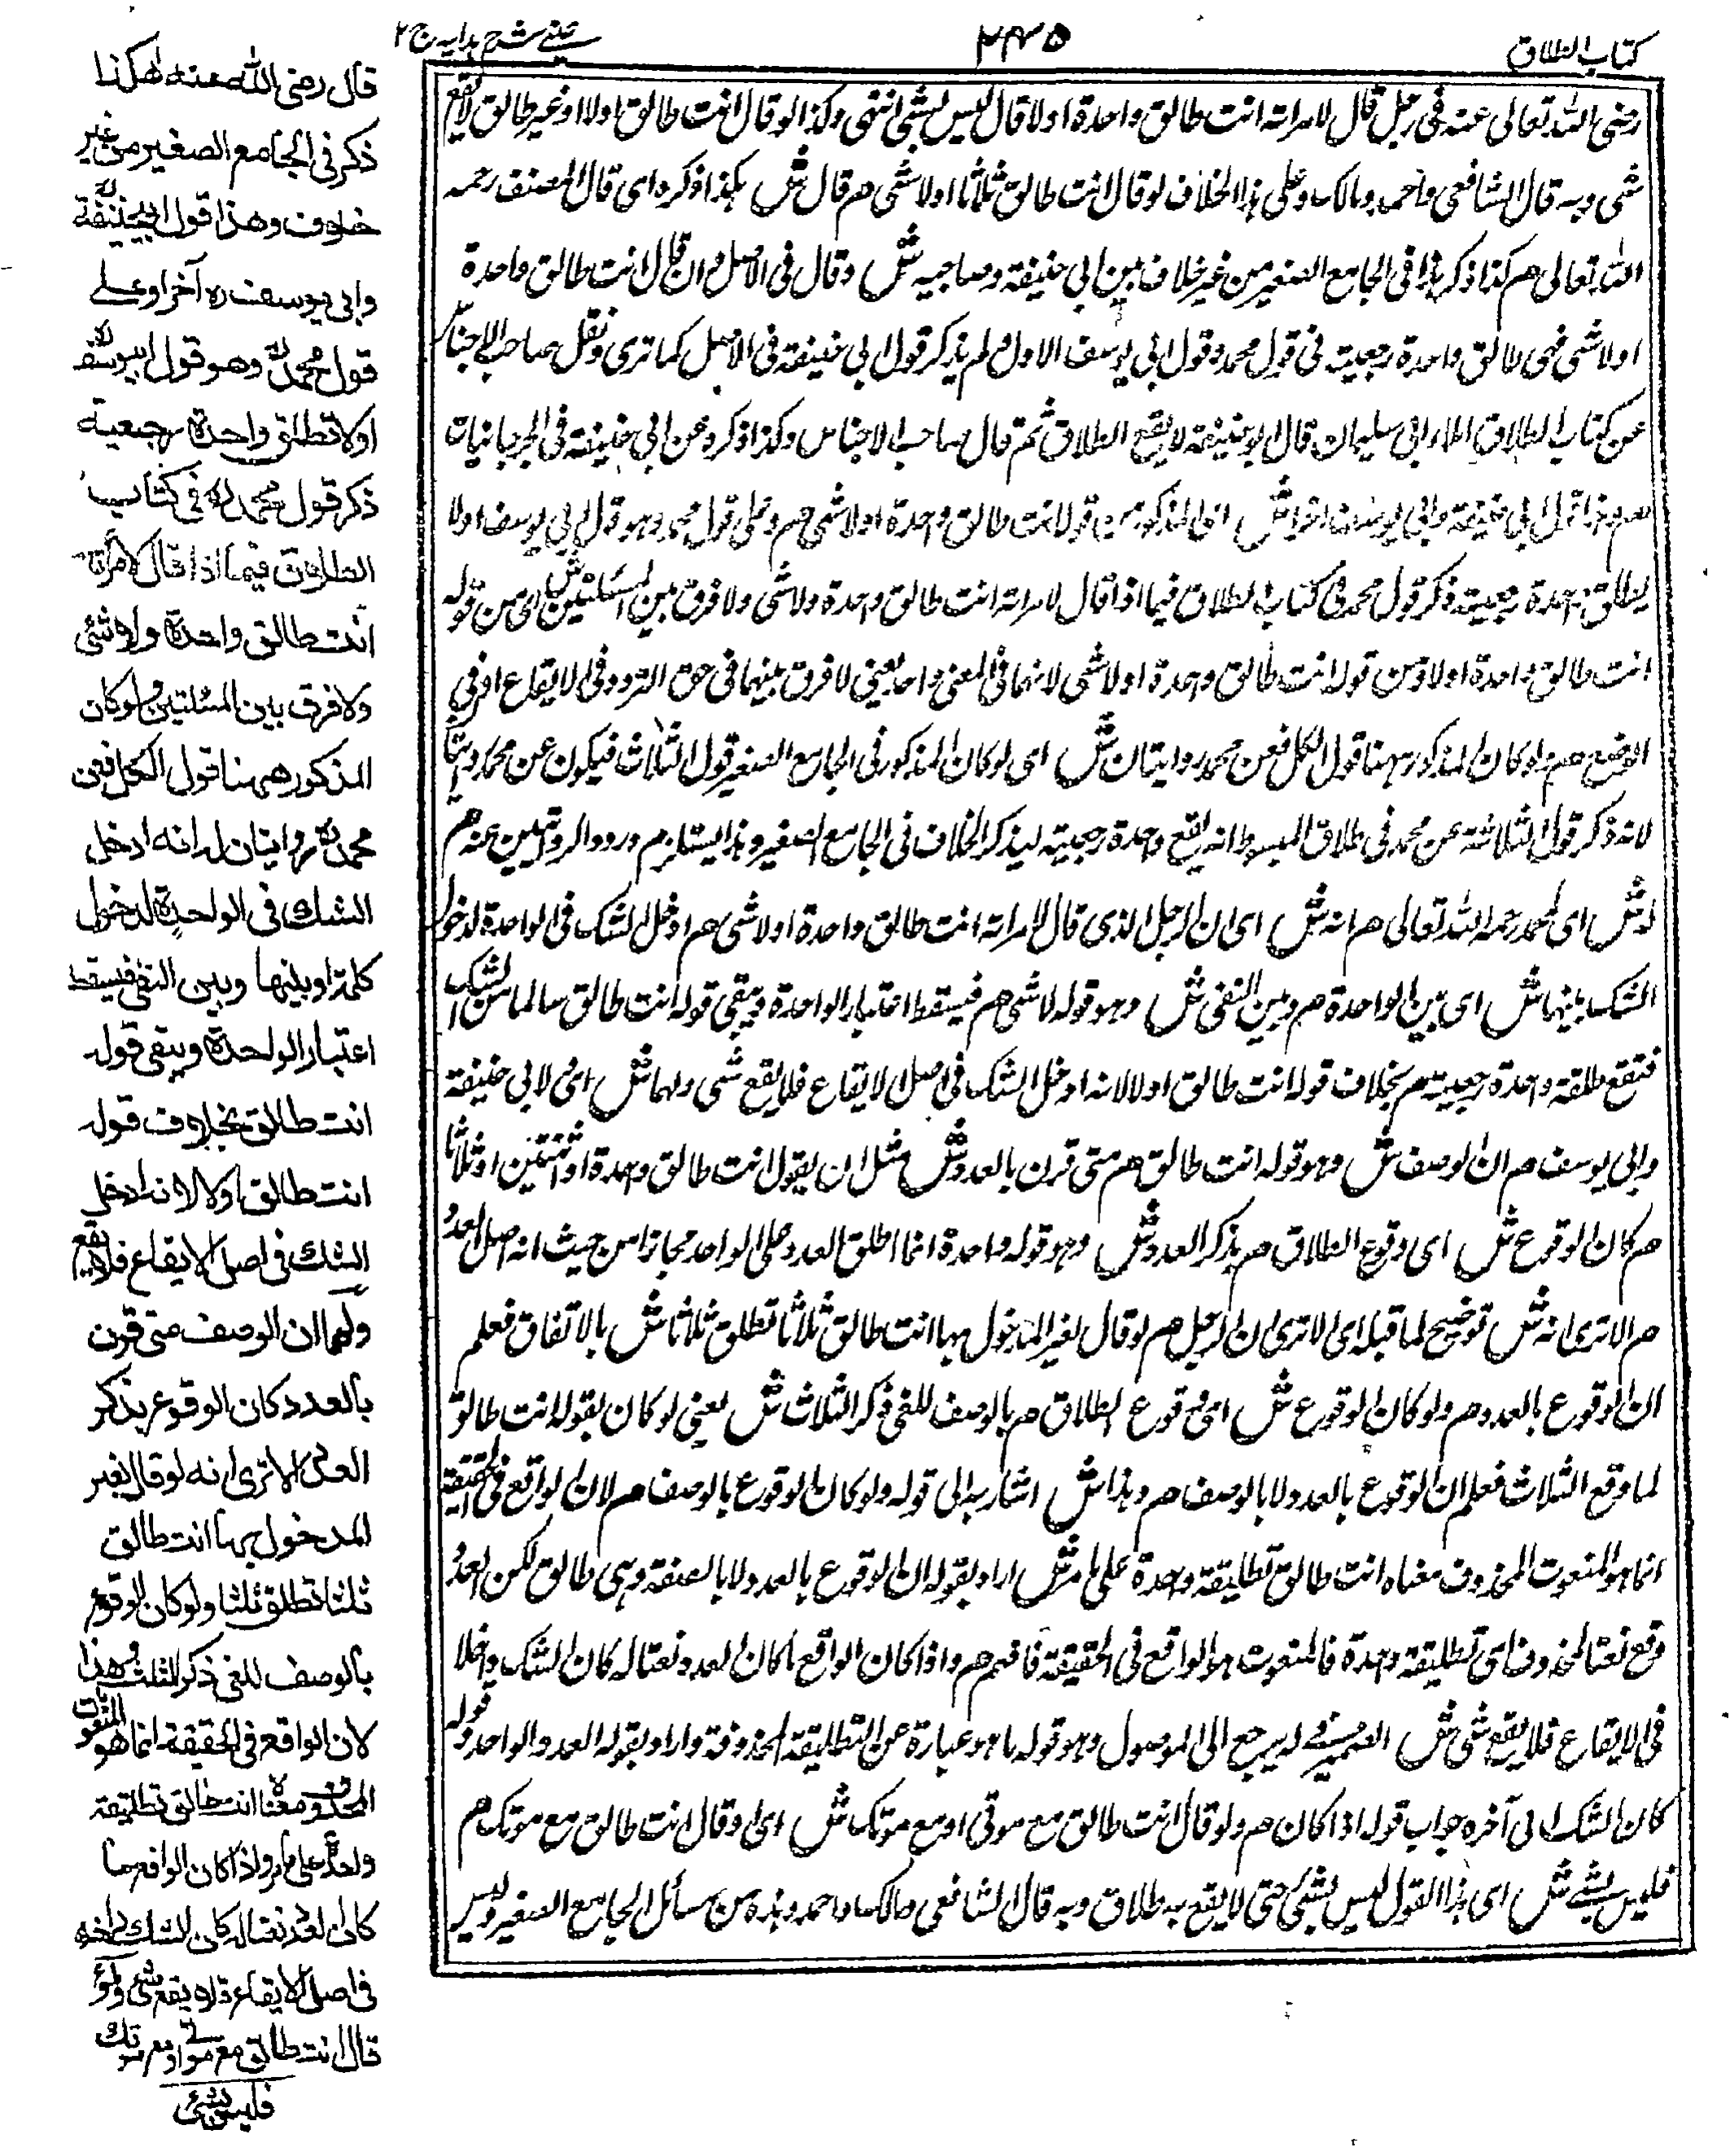 كتاب الطلاق
٢٤٥
عينى شرح هدايه ج ٢
رضى الله تعالى عنه فى رجل قال لامراته انت طالق واحدة اولا قال ليس بشئ انتهى وكذا لو قال انت طالق اولا او غير طالق لا يقع
شئ وبه قال الشافعى واحمد ومالك وعلى هذا الخلاف لو قال انت طالق ثلاثا اولا شئ هم قال ش هكذا ذكره اى قال المصنف رحمه
الله تعالى هم كذا ذكر هذا فى الجامع الصغير من غير خلاف بين ابى حنيفة وصاحبيه ش وقال فى الاصل ان قال انت طالق واحدة
اولا شئ فهى طالق واحدة رجعية فى قول محمد وقول ابى يوسف الاول ولم يذكر قول ابى حنيفة فى الاصل كما ترى ونقل صاحب الاجناس
عن كتاب الطلاق املاء ابى سليمان قال ابو حنيفة لا يقع الطلاق ثم قال صاحب الاجناس وكذا ذكره عن ابى حنيفة فى الجرجانيات
هم وهذا قول ابى حنيفة وابى يوسف اخرا ش اى المذكور من قوله انت طالق واحدة اولا شئ هم وعلى قول محمد وهو قول ابى يوسف اولا
يطلق واحدة رجعية ذكر قول محمد فى كتاب الطلاق فيما اذا قال لامراته انت طالق واحدة ولا شئ ولا فرق بين المسئلتين ش اى من قوله
انت طالق واحدة اولا ومن قوله انت طالق واحدة اولا شئ لانهما فى المعنى واحد يعنى لا فرق بينهما فى حق التردد فى الايقاع او فى
الوضع هم ولو كان المذكور ههنا قول الكل فعن محمد روايتان ش اى لو كان المذكور فى الجامع الصغير قول الثلاث فيكون عن محمد روايتان
لانه ذكر قول الثلاثة عن محمد فى طلاق المبسوط انه يقع واحدة رجعية ليذكر الخلاف فى الجامع الصغير وهذا يستلزم ورود الروايتين عنه هم
له ش اى لمحمد رحمه الله تعالى هم انه ش اى ان الرجل الذى قال لامراته انت طالق واحدة اولا شئ هم ادخل الشك فى الواحدة لدخول
الشك بينها ش اى بين الواحدة هم وبين النفى ش وهو قوله لا شئ هم فيسقط اعتبار الواحدة ويبقى قوله انت طالق سالما من الشك
فتقع طلقة واحدة رجعية هم بخلاف قوله انت طالق اولا لانه ادخل الشك فى اصل الايقاع فلا يقع شئ ولهما ش اى لابى حنيفة
وابى يوسف هم ان الوصف ش وهو قوله انت طالق هم متى قرن بالعدد ش مثل ان يقول انت طالق واحدة او اثنتين او ثلاثا
هم كان الوقوع ش اى وقوع الطلاق هم بذكر العدد ش وهو قوله واحدة انما اطلق العدد على الواحد مجازا من حيث انه اصل العدد
هم الا ترى انه ش توضيح لما قبله اى الا ترى ان الرجل هم لو قال لغير المدخول بها انت طالق ثلاثا تطلق ثلاثا ش بالاتفاق فعلم
ان الوقوع بالعدد هم ولو كان الوقوع ش اى وقوع الطلاق هم بالوصف للغى ذكر الثلاث ش يعنى لو كان بقوله انت طالق
لما وقع الثلاث فعلم ان الوقوع بالعدد لا بالوصف هم وهذا ش اشار به الى قوله ولو كان الوقوع بالوصف هم لان الواقع فى الحقيقة
انما هو المنعوت المحذوف معناه انت طالق تطليقة واحدة على ما مر ش اراد بقوله ان الوقوع بالعدد لا بالصفة وهى طالق لكن العدد
وقع نعتا لمحذوف اى تطليقة واحدة فالمنعوت هو الواقع فى الحقيقة فافهم هم واذا كان الواقع ما كان العدد نعتا له كان الشك داخلا
فى الايقاع فلا يقع شئ ش الضمير فى له يرجع الى الموصول وهو قوله ما هو عبارة عن التطليقة المحذوفة واراد بقوله العدد والواحد وقوله
كان الشك الى آخره جواب قوله اذا كان هم ولو قال انت طالق مع موتى او مع موتك ش اى او قال انت طالق مع موتك هم
فليس بشئ ش اى هذا القول ليس بشئ حتى لا يقع به طلاق وبه قال الشافعى ومالك واحمد وهذه من مسائل الجامع الصغير وليس
قال رضى الله عنه هكذا
ذكر فى الجامع الصغير من غير
خلاف وهذا قول ابيحنيفة
وابى يوسف ره آخرا وعلى
قول محمد وهو قول ابيوسف
اولا تطلق واحدة رجعية
ذكر قول محمد فى كتاب
الطلاق فيما اذا قال لامرأته
انت طالق واحدة ولا شئ
ولا فرق بين المسئلتين ولو كان
المذكور ههنا قول الكل فعن
محمد روايتان له انه ادخل
الشك فى الواحدة لدخول
كلمة او بينها وبين النفى فيسقط
اعتبار الواحدة ويبقى قوله
انت طالق بخلاف قوله
انت طالق اولا لانه ادخل
الشك فى اصل الايقاع فلا يقع
ولهما ان الوصف متى قرن
بالعدد كان الوقوع بذكر
العدد الا ترى انه لو قال لغير
المدخول بها انت طالق
ثلثا تطلق ثلثا ولو كان الوقوع
بالوصف للغى ذكر الثلث وهذا
لان الواقع فى الحقيقة انما هو المنعوت
المحذوف معناه انت طالق تطليقة
واحدة على ما مر واذا كان الواقع ما
كان العدد نعتا له كان الشك داخلا
فى اصل الايقاع فلا يقع شئ ولو
قال انت طالق مع موتى او مع موتك
فليس بشئ